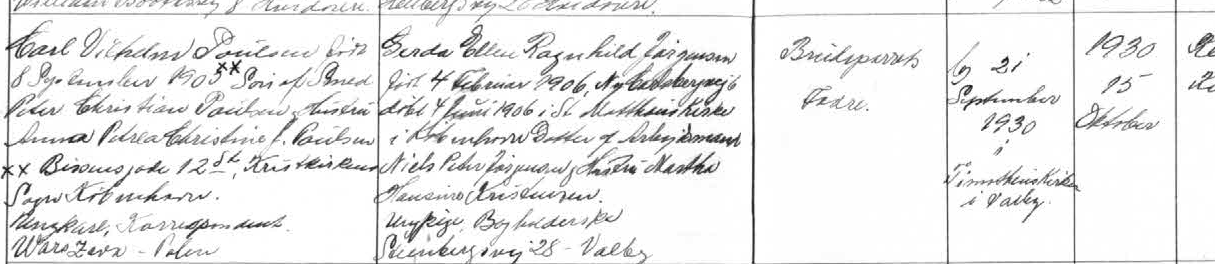 Hellbergsvej 26 Hvidovre.
Carl Vilhelm Poulsen født
8 September 1903 xx Søn af Smed
Peter Christian Poulsen og Hustru
Anna Petrea Christine f. Poulsen
xx Bissensgade 12 St, Kristkirkens
Sogn København.
Ungkarl, Korrespondent.
Warszava - Polen
Gerda Ellen Ragnhild Jørgensen
født 4 Februar 1906, Ny
døbt 4 Juni 1906 i St. Matthæus Kirke
i København Datter af Arbejdsmand
Niels Peter Jørgensen og Hustru Martha
Hansine Kristensen.
Ungpige, Bogholderske
Steenbergsvej 28 - Valby
Brudeparrets
Fædre.
21
September
1930
i
Timotheuskirken
i Valby.
1930
15
Oktober